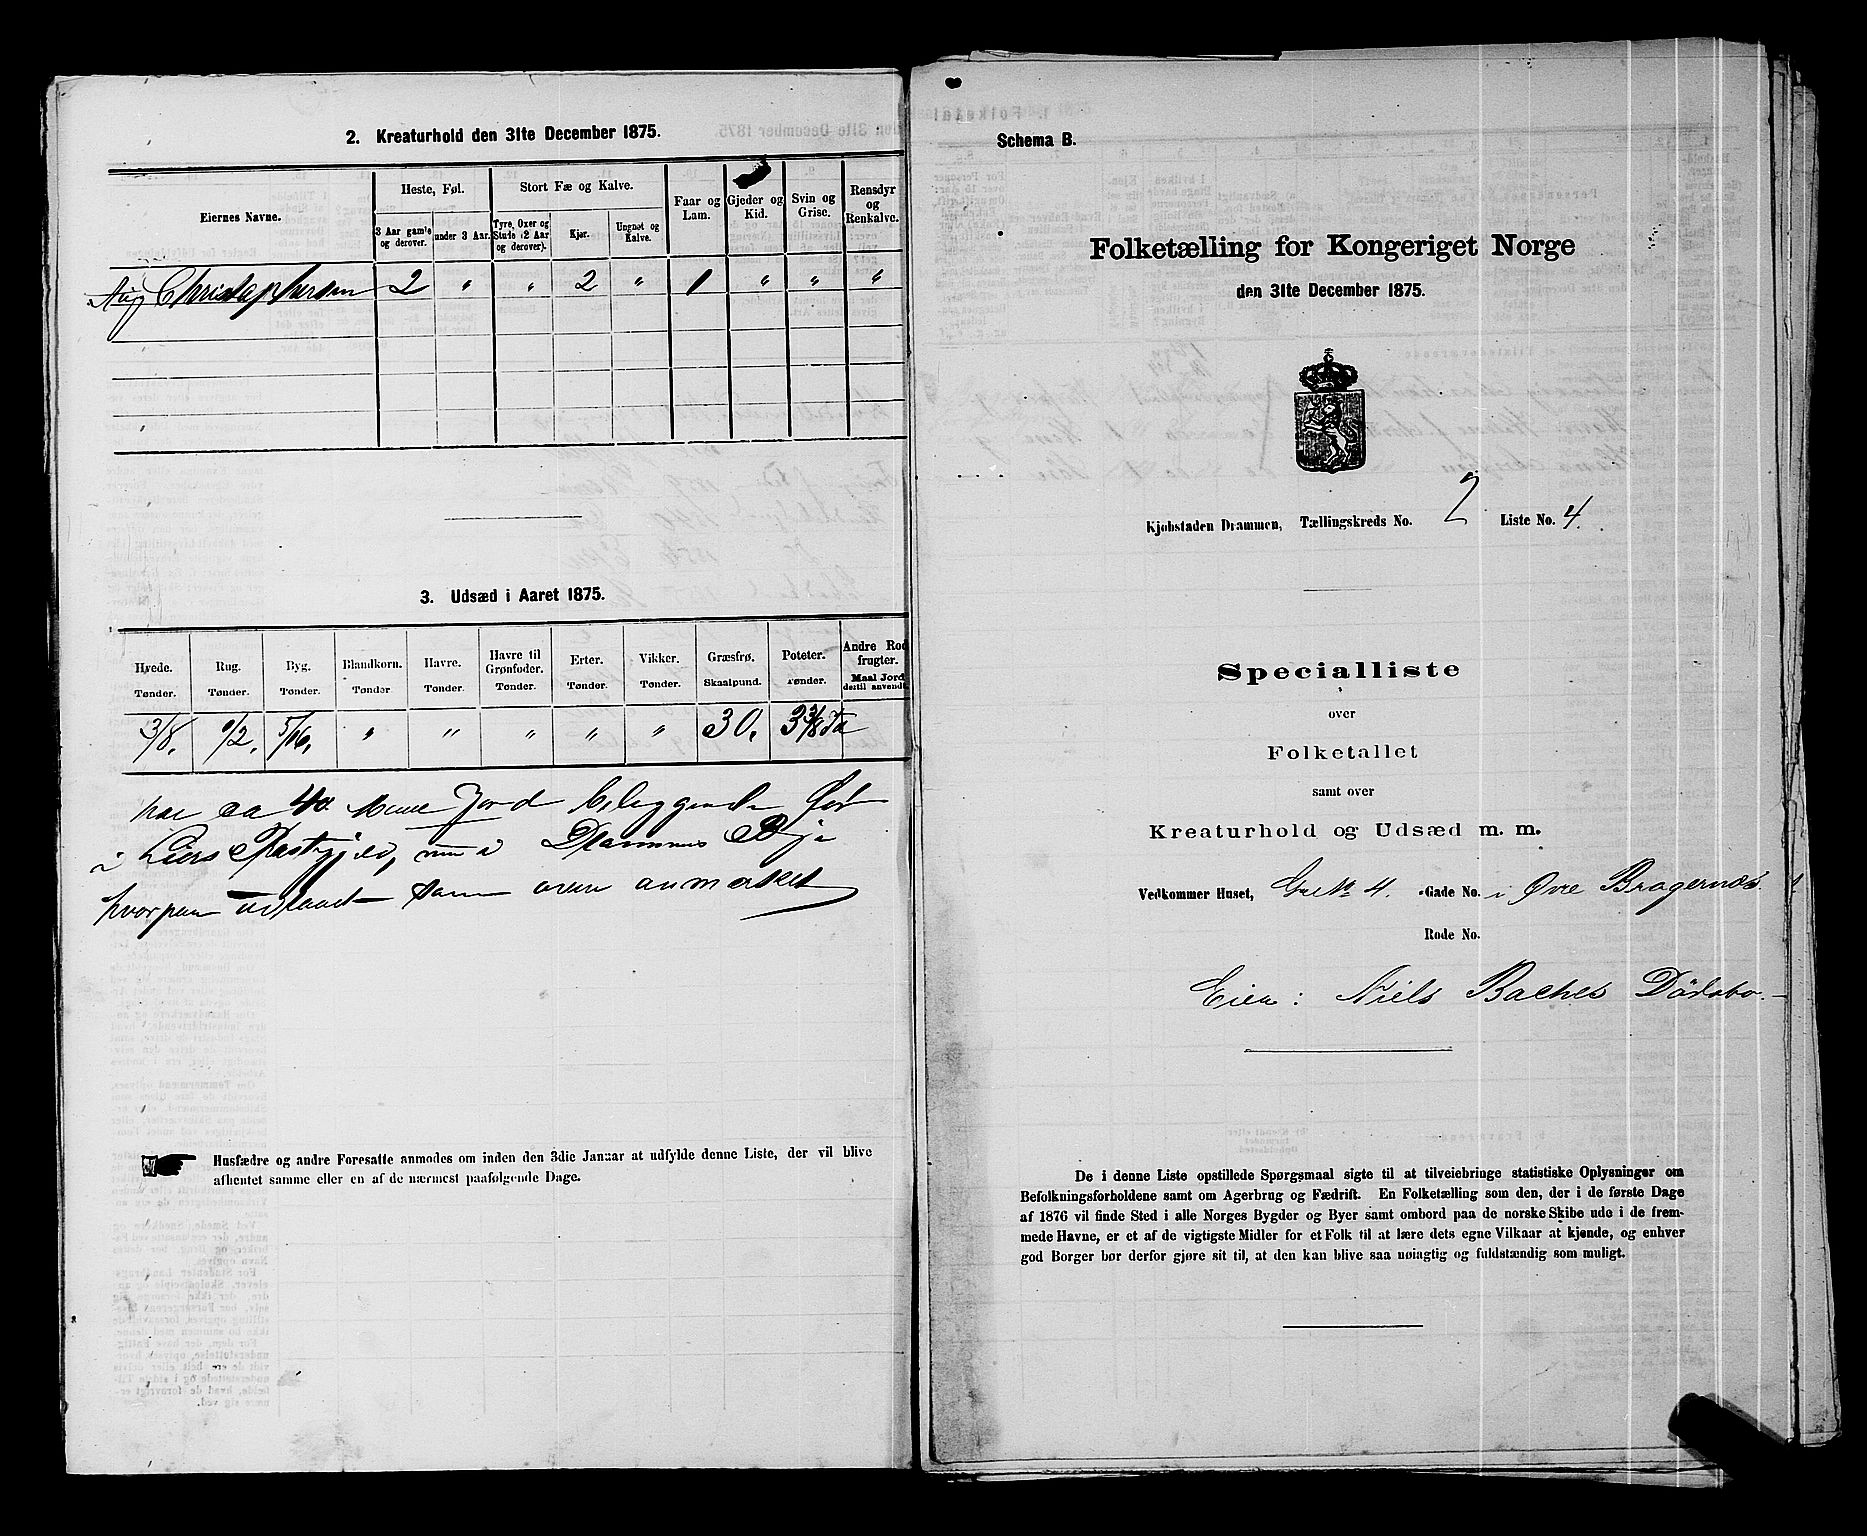 2. Kreaturhold den 31te December 1875.
Eiernes Navne.
Heste, Føl.
Stort Fæ og Kalve.
Faar og Lam.
Gjeder og Kid.
Svin og Grise.
Rensdyr og Renkalve.
3 Aar gamle og derover.
under 3 Aar.
Tyre, Oxer og Stude (2 Aar og derover).
Kjør.
Ungnøt og Kalve.
Aug Christophersen 2 " " 2 " 1 " " "
3. Udsæd i Aaret 1875.
Hvede. Rug. Byg. Blandkorn. Havre. Havre til Grønfoder. Erter. Vikker. Græsfrø. Poteter. Andre Rodfrugter.
Tønder. Tønder. Tønder. Tønder Tønder. Tønder. Tønder. Tønder. Skaalpund. Tønder. Maal Jord dertil anvendt.
3/8. 1/2. 5/16. " " " " " 30. 3 3/8 Tø
har ca 40 Maal Jord beliggende før
i Liers Præstegjeld, nu i Drammens By
hvorpaa udsaaet som oven anmærket
Husfædre og andre Foresatte anmodes om inden den 3die Januar at udfylde denne Liste, der vil blive
afhentet samme eller en af de nærmest paafølgende Dage.
Schema B.
Folketælling for Kongeriget Norge
den 31te December 1875.
Kjøbstaden Drammen, Tællingskreds No. 2 Liste No. 4.
Specialliste
over
Folketallet
samt over
Kreaturhold og Udsæd m. m.
Vedkommer Huset, No 4. Gade No. i Øvre Bragernæs
Rode No.
Eier: Niels Baches Dödsbo.
De i denne Liste opstillede Spørgsmaal sigte til at tilveiebringe statistiske Oplysninger om
Befolkningsforholdene samt om Agerbrug og Fædrift. En Folketælling som den, der i de første Dage
af 1876 vil finde Sted i alle Norges Bygder og Byer samt ombord paa de norske Skibe ude i de frem-
mede Havne, er et af de vigtigste Midler for et Folk til at lære dets egne Vilkaar at kjende, og enhver
god Borger bør derfor gjøre sit til, at den kan blive saa nøiagtig og fuldstændig som muligt.